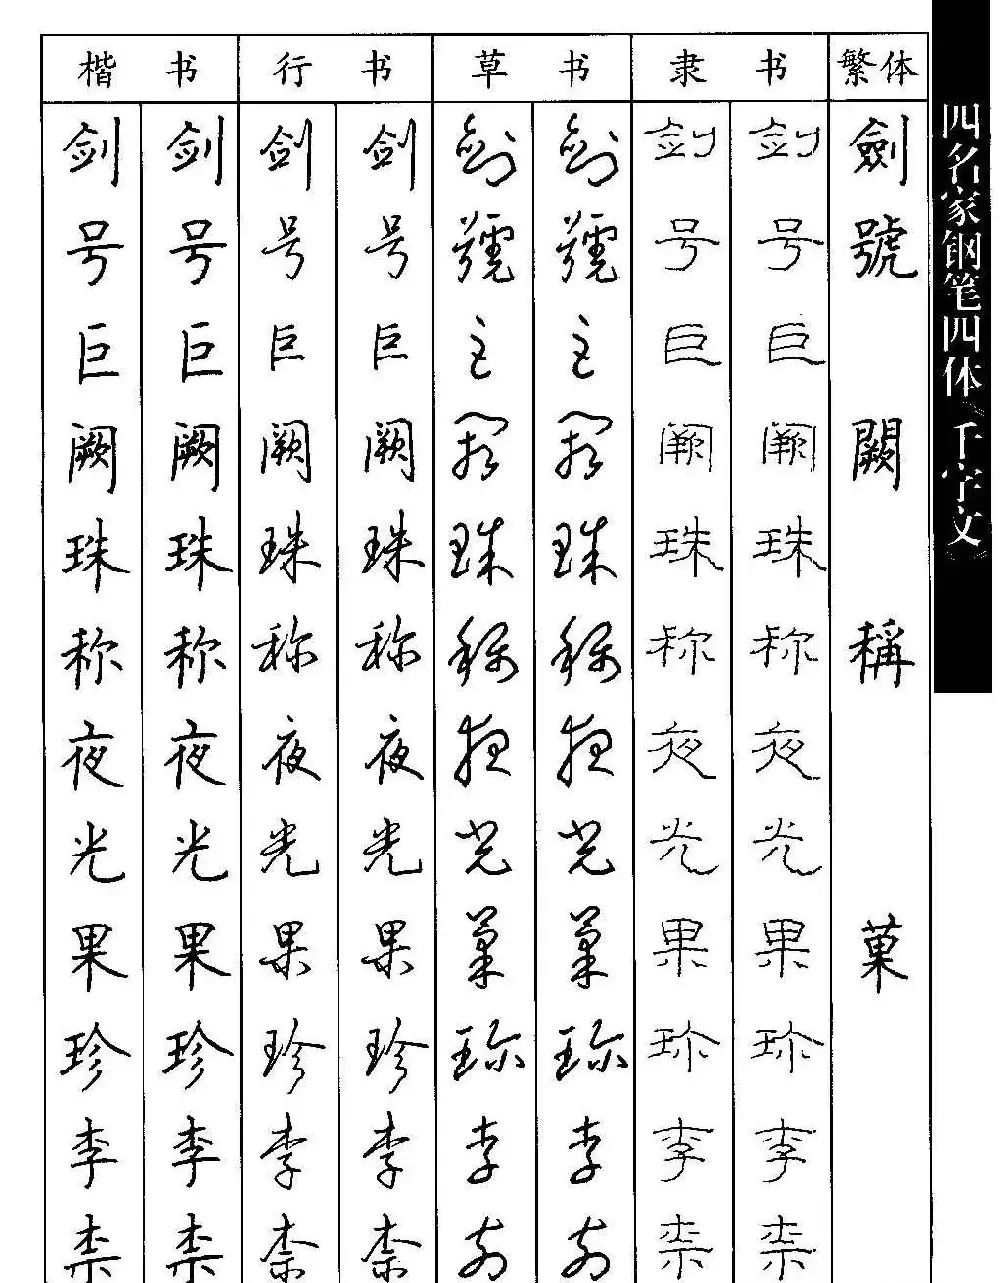 楷书 行书 草书 隶书 繁体
剑 剑 剑 剑 剑 剑 剑 剑 劍
号 号 号 号 號 號 号 号 號
巨 巨 巨 巨 巨 巨 巨 巨
阙 阙 阙 阙 阙 阙 阙 阙 闕
珠 珠 珠 珠 珠 珠 珠 珠
称 称 称 称 稱 稱 称 称 稱
夜 夜 夜 夜 夜 夜 夜 夜
光 光 光 光 光 光 光 光
果 果 果 果 菓 菓 果 果 菓
珍 珍 珍 珍 珍 珍 珍 珍
李 李 李 李 李 李 李 李
柰 柰 柰 柰 柰 柰 柰 柰
四名家钢笔四体《千字文》